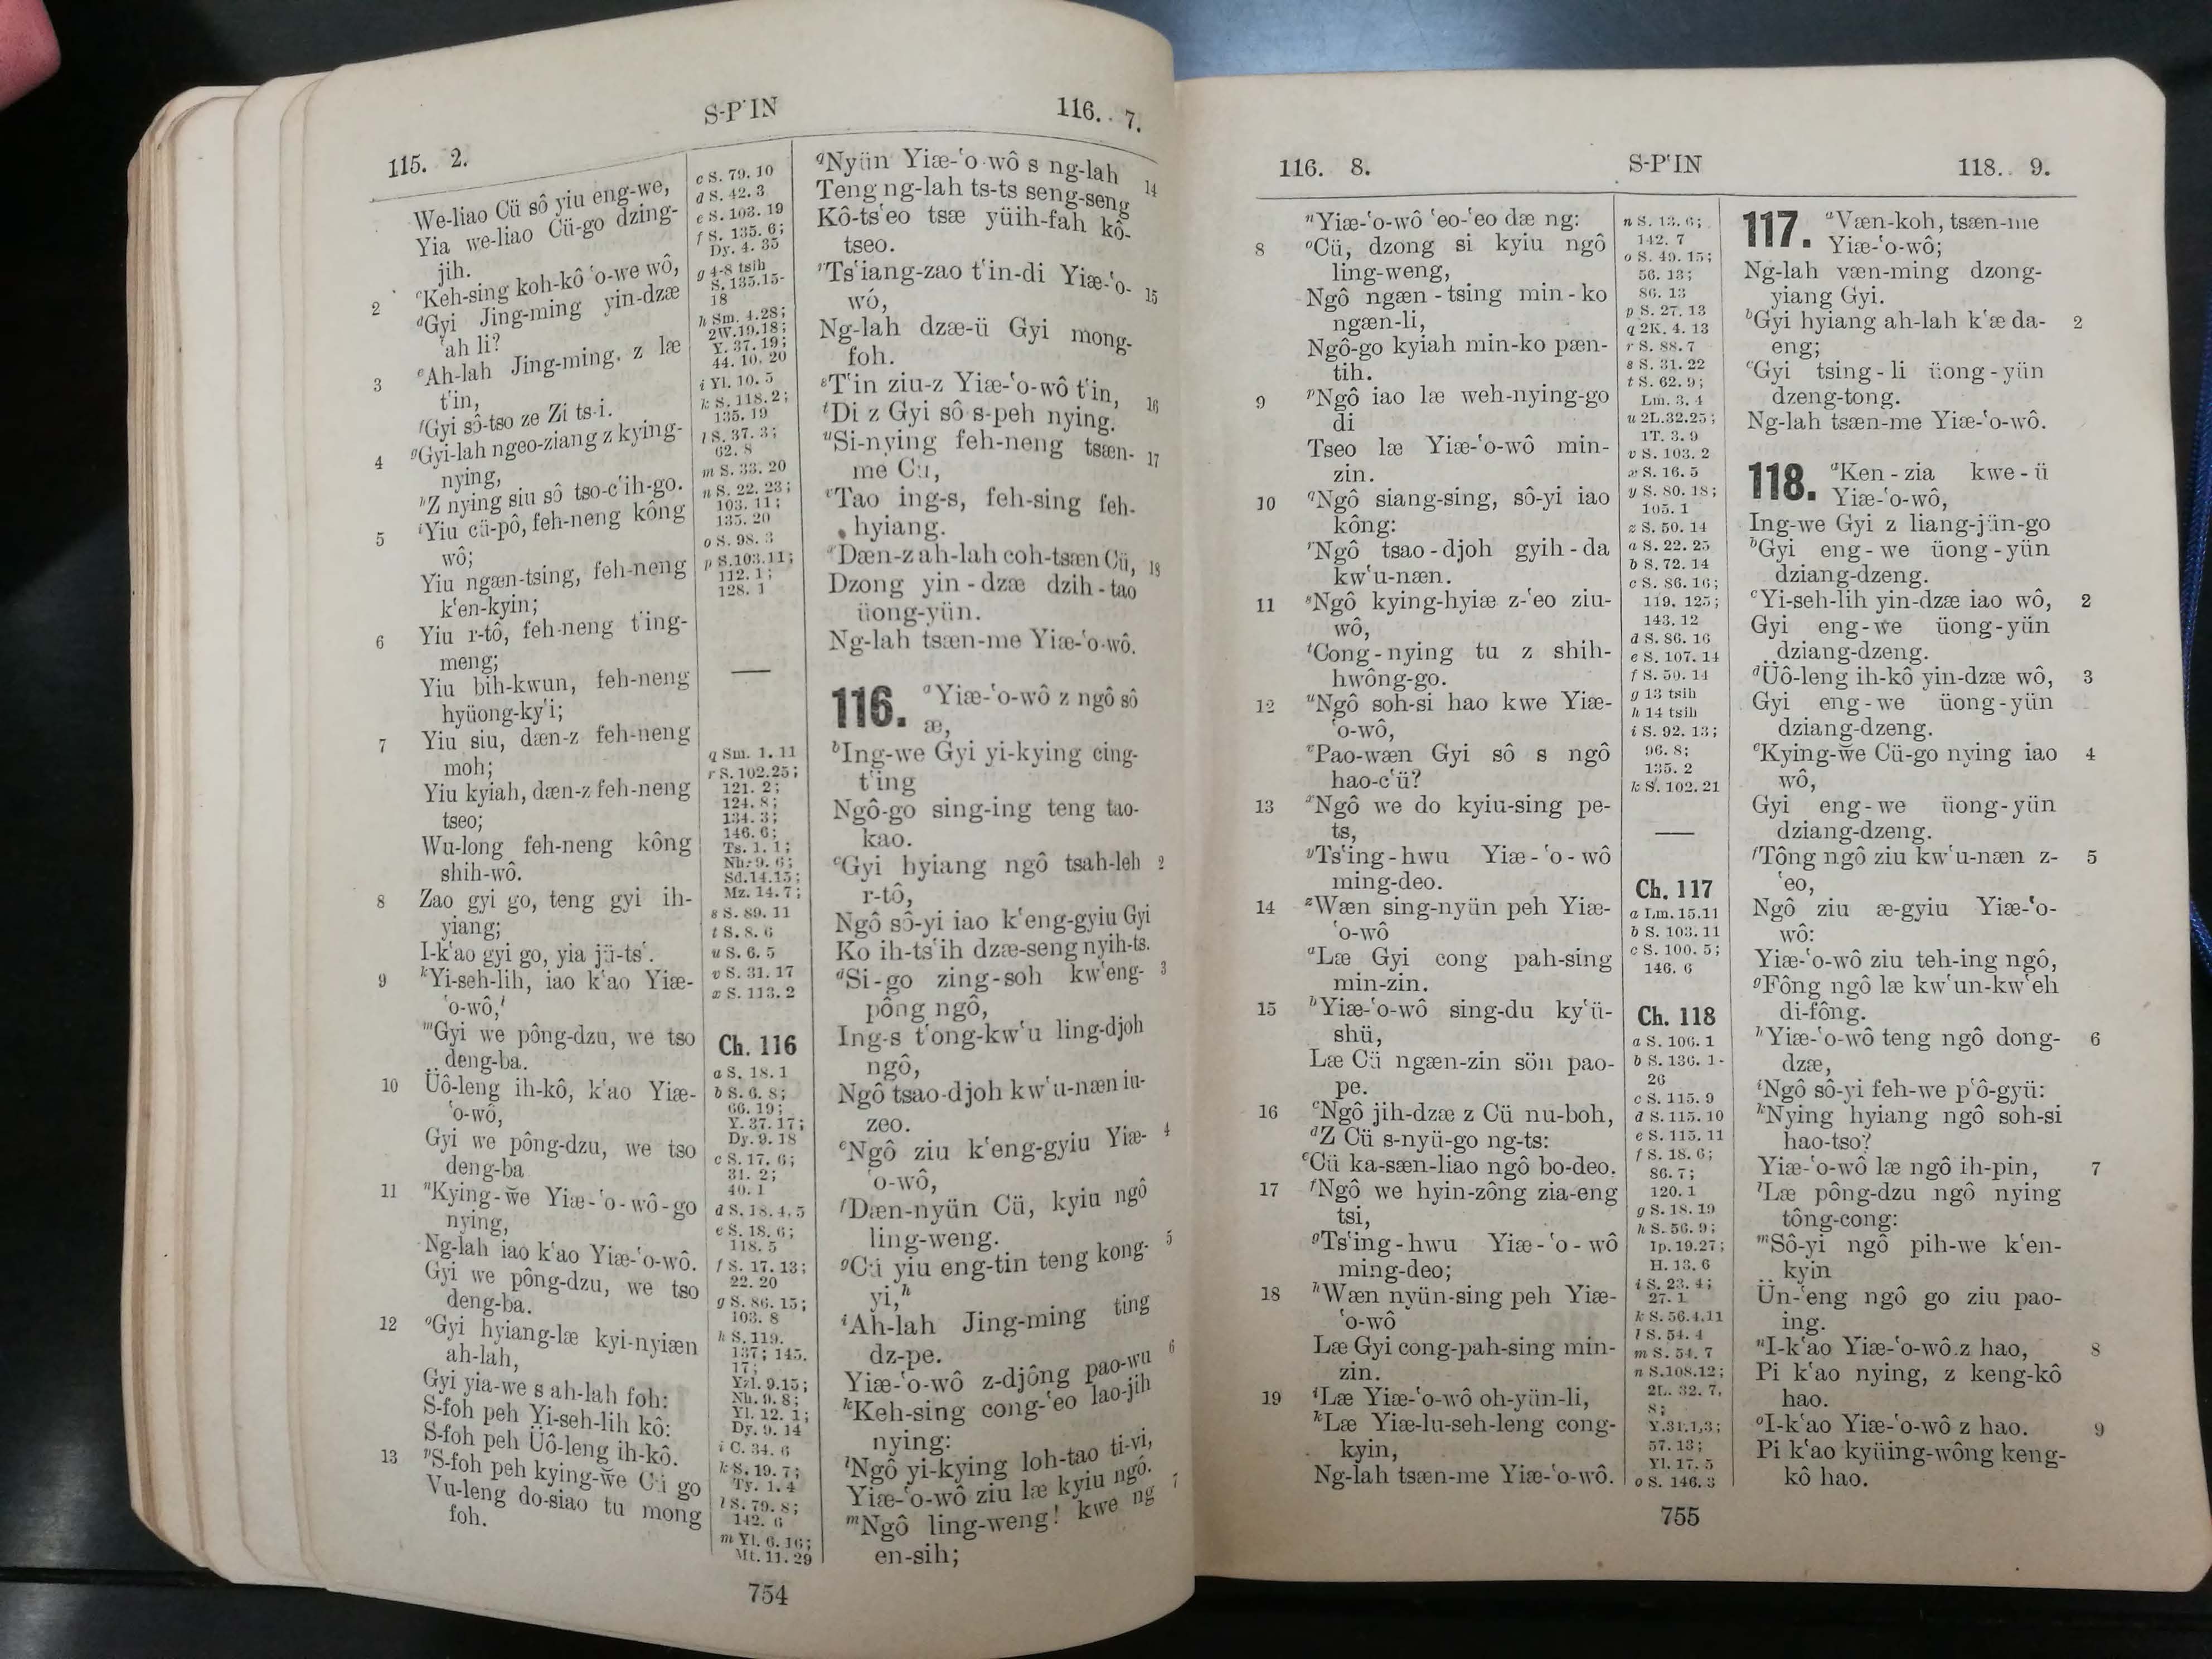 115. 2.
S-P'IN
116. . 7.
We-liao Cü sô yiu eng-we,
Yia we-liao Cü-go dzing-
jih.
2 cKeh-sing koh-kô ʻo-we wô,
dGyi Jing-ming yin-dzæ
ʻah li?
3 eAh-lah Jing-ming, z læ
tʻin,
fGyi sô-tso ze Zi ts-i.
4 gGyi-lah ngeo-ziang z kying-
nying,
hZ nying siu sô tso-cʻih-go.
5 iYiu cü-pô, feh-neng kông
wô;
Yiu ngæn-tsing, feh-neng
kʻen-kyin;
6 Yiu r-tô, feh-neng tʻing-
meng;
Yiu bih-kwun, feh-neng
hyüong-kyʻi;
7 Yiu siu, dæn-z feh-neng
moh;
Yiu kyiah, dæn-z feh-neng
tseo;
Wu-long feh-neng kông
shih-wô.
8 Zao gyi go, teng gyi ih-
yiang;
I-kʻao gyi go, yia jü-tsʻ.
9 kYi-seh-lih, iao kʻao Yiæ-
ʻo-wô,l
mGyi we pông-dzu, we tso
deng-ba.
10 Üô-leng ih-kô, kʻao Yiæ-
ʻo-wô,
Gyi we pông-dzu, we tso
deng-ba
11 nKying-wĕ Yiæ-ʻo-wô-go
nying,
Ng-lah iao kʻao Yiæ-ʻo-wô.
Gyi we pông-dzu, we tso
deng-ba.
12 oGyi hyiang-læ kyi-nyiæn
ah-lah,
Gyi yia-we s ah-lah foh:
S-foh peh Yi-seh-lih kô:
S-foh peh Üô-leng ih-kô.
13 pS-foh peh kying-wĕ Cü go
Vu-leng do-siao tu mong
foh.
c S. 79. 10
d S. 42. 3
e S. 103. 19
f S. 135. 6;
Dy. 4. 35
g 4-8 tsih
S. 135.15-
18
h Sm. 4.28;
2W.19.18;
Y. 37. 19;
44. 10. 20
i Yl. 10. 5
k S. 118. 2;
135. 19
l S. 37. 3;
62. 8
m S. 33. 20
n S. 22. 23;
103. 11;
135. 20
o S. 98. 3
p S.103.11;
112. 1;
128. 1
q Sm. 1. 11
r S. 102.25;
121. 2;
124. 8;
134. 3;
146. 6;
Ts. 1. 1;
Nh. 9. 6;
Sd.14.15;
Mz. 14. 7;
s S. 89. 11
t S. 8. 6
u S. 6. 5
v S. 31. 17
x S. 113. 2
Ch. 116
a S. 18. 1
b S. 6. 8;
66. 19;
Y. 37. 17;
Dy. 9. 18
c S. 17. 6;
31. 2;
40. 1
d S. 18. 4, 5
e S. 18. 6;
118. 5
f S. 17. 13;
22. 20
g S. 86. 15;
103. 8
h S. 119.
137; 145.
17;
Yzl. 9.15;
Nh. 9. 8;
Yl. 12. 1;
Dy. 9. 14
i C. 34. 6
k S. 19. 7;
Ty. 1. 4
l S. 79. 8;
142. 6
m Yl. 6. 16;
Mt. 11. 29
qNyün Yiæ-ʻo-wô s ng-lah 14
Teng ng-lah ts-ts seng-seng
Kô-tsʻeo tsæ yüih-fah kô-
tseo.
rTsʻiang-zao tʻin-di Yiæ-ʻo- 15
wó,
Ng-lah dzæ-ü Gyi mong-
foh.
sTʻin ziu-z Yiæ-ʻo-wô tʻin, 16
tDi z Gyi sô s-peh nying.
uSi-nying feh-neng tsæn- 17
me Cü,
vTao ing-s, feh-sing feh-
hyiang.
xDæn-z ah-lah coh-tsæn Cü, 18
Dzong yin-dzæ dzih-tao
üong-yün.
Ng-lah tsæn-me Yiæ-ʻo-wô.
116. aYiæ-ʻo-wô z ngô sô
æ,
bIng-we Gyi yi-kying cing-
tʻing
Ngô-go sing-ing teng tao-
kao.
cGyi hyiang ngô tsah-leh 2
r-tô,
Ngô sô-yi iao kʻeng-gyiu Gyi
Ko ih-tsʻih dzæ-seng nyih-ts.
dSi-go zing-soh kwʻeng- 3
pông ngô,
Ing-s tʻong-kwʻu ling-djoh
ngô,
Ngô tsao-djoh kwʻu-næn iu-
zeo.
eNgô ziu kʻeng-gyiu Yiæ- 4
ʻo-wô,
fDæn-nyün Cü, kyiu ngô
ling-weng.
gCü yiu eng-tin teng kong- 5
yi,h
iAh-lah Jing-ming ting
dz-pe.
Yiæ-ʻo-wô z-djông pao-wu 6
kKeh-sing cong-ʻeo lao-jih
nying:
lNgô yi-kying loh-tao ti-vi,
Yiæ-ʻo-wô ziu læ kyiu ngô.
mNgô ling-weng! kwe ng 7
en-sih;
754
116. 8.
S-PʻIN
118. . 9.
nYiæ-ʻo-wô ʻeo-ʻeo dæ ng:
8 oCü, dzong si kyiu ngô
ling-weng,
Ngô ngæn-tsing min-ko
ngæn-li,
Ngô-go kyiah min-ko pæn-
tih.
9 pNgô iao læ weh-nying-go
di
Tseo læ Yiæ-ʻo-wô min-
zin.
10 qNgô siang-sing, sô-yi iao
kông:
rNgô tsao-djoh gyih-da
kwʻu-næn.
11 sNgô kying-hyiæ z-ʻeo ziu-
wô,
tCong-nying tu z shih-
hwông-go.
12 uNgô soh-si hao kwe Yiæ-
ʻo-wô,
vPao-wæn Gyi sô s ngô
hao-cʻü?
13 xNgô we do kyiu-sing pe-
ts,
yTsʻing-hwu Yiæ-ʻo-wô
ming-deo.
14 zWæn sing-nyün peh Yiæ-
ʻo-wô
aLæ Gyi cong pah-sing
min-zin.
15 bYiæ-ʻo-wô sing-du kyʻü-
shü,
Læ Cü ngæn-zin sön pao-
pe.
16 cNgô jih-dzæ z Cü nu-boh,
dZ Cü s-nyü-go ng-ts:
eCü ka-sæn-liao ngô bo-deo.
17 fNgô we hyin-zông zia-eng
tsi,
gTsʻing-hwu Yiæ-ʻo-wô
ming-deo;
18 hWæn nyün-sing peh Yiæ-
ʻo-wô
Læ Gyi cong-pah-sing min-
zin.
19 iLæ Yiæ-ʻo-wô oh-yün-li,
kLæ Yiæ-lu-seh-leng cong-
kyin,
Ng-lah tsæn-me Yiæ-ʻo-wô.
n S. 13. 6;
142. 7
o S. 49. 15;
56. 13;
86. 13
p S. 27. 13
q 2K. 4. 13
r S. 88. 7
s S. 31. 22
t S. 62. 9;
Lm. 3. 4
u 2L.32.25;
1T. 3. 9
v S. 103. 2
x S. 16. 5
y S. 80. 18;
105. 1
z S. 50. 14
a S. 22. 25
b S. 72. 14
c S. 86. 16;
119. 125;
143. 12
d S. 86. 16
e S. 107. 14
f S. 50. 14
g 13 tsih
h 14 tsih
i S. 92. 13;
96. 8;
135. 2
k S. 102. 21
Ch. 117
a Lm. 15.11
b S. 103. 11
c S. 100. 5;
146. 6
Ch. 118
a S. 106. 1
b S. 136. 1-
26
c S. 115. 9
d S. 115. 10
e S. 115. 11
f S. 18. 6;
86. 7;
120. 1
g S. 18. 19
h S. 56. 9;
1p. 19.27;
H. 13. 6
i S. 23. 4;
27. 1
k S. 56.4,11
l S. 54. 4
m S. 54. 7
n S.108.12;
2L. 32. 7,
8;
Y.31.1,3;
57. 13;
Yl. 17. 5
o S. 146.3
117. aVæn-koh, tsæn-me
Yiæ-ʻo-wô;
Ng-lah væn-ming dzong-
yiang Gyi.
bGyi hyiang ah-lah kʻæ da- 2
eng;
cGyi tsing-li üong-yün
dzeng-tong.
Ng-lah tsæn-me Yiæ-ʻo-wô.
118. aKen-zia kwe-ü
Yiæ-ʻo-wô,
Ing-we Gyi z liang-jün-go
bGyi eng-we üong-yün
dziang-dzeng.
cYi-seh-lih yin-dzæ iao wô, 2
Gyi eng-we üong-yün
dziang-dzeng.
dÜô-leng ih-kô yin-dzæ wô, 3
Gyi eng-we üong-yün
dziang-dzeng.
eKying-wĕ Cü-go nying iao 4
wô,
Gyi eng-we üong-yün
dziang-dzeng.
fTông ngô ziu kwʻu-næn z- 5
ʻeo,
Ngô ziu æ-gyiu Yiæ-ʻo-
wô:
Yiæ-ʻo-wô ziu teh-ing ngô,
gFông ngô læ kwʻun-kwʻeh
di-fông.
hYiæ-ʻo-wô teng ngô dong- 6
dzæ,
iNgô sô-yi feh-we pʻô-gyü:
kNying hyiang ngô soh-si
hao-tso?
Yiæ-ʻo-wô læ ngô ih-pin, 7
lLæ pông-dzu ngô nying
tông-cong:
mSô-yi ngô pih-we kʻen-
kyin
Ün-ʻeng ngô go ziu pao-
ing.
nI-kʻao Yiæ-ʻo-wô z hao, 8
Pi kʻao nying, z keng-kô
hao.
oI-kʻao Yiæ-ʻo-wô z hao. 9
Pi kʻao kyüing-wông keng-
kô hao.
755